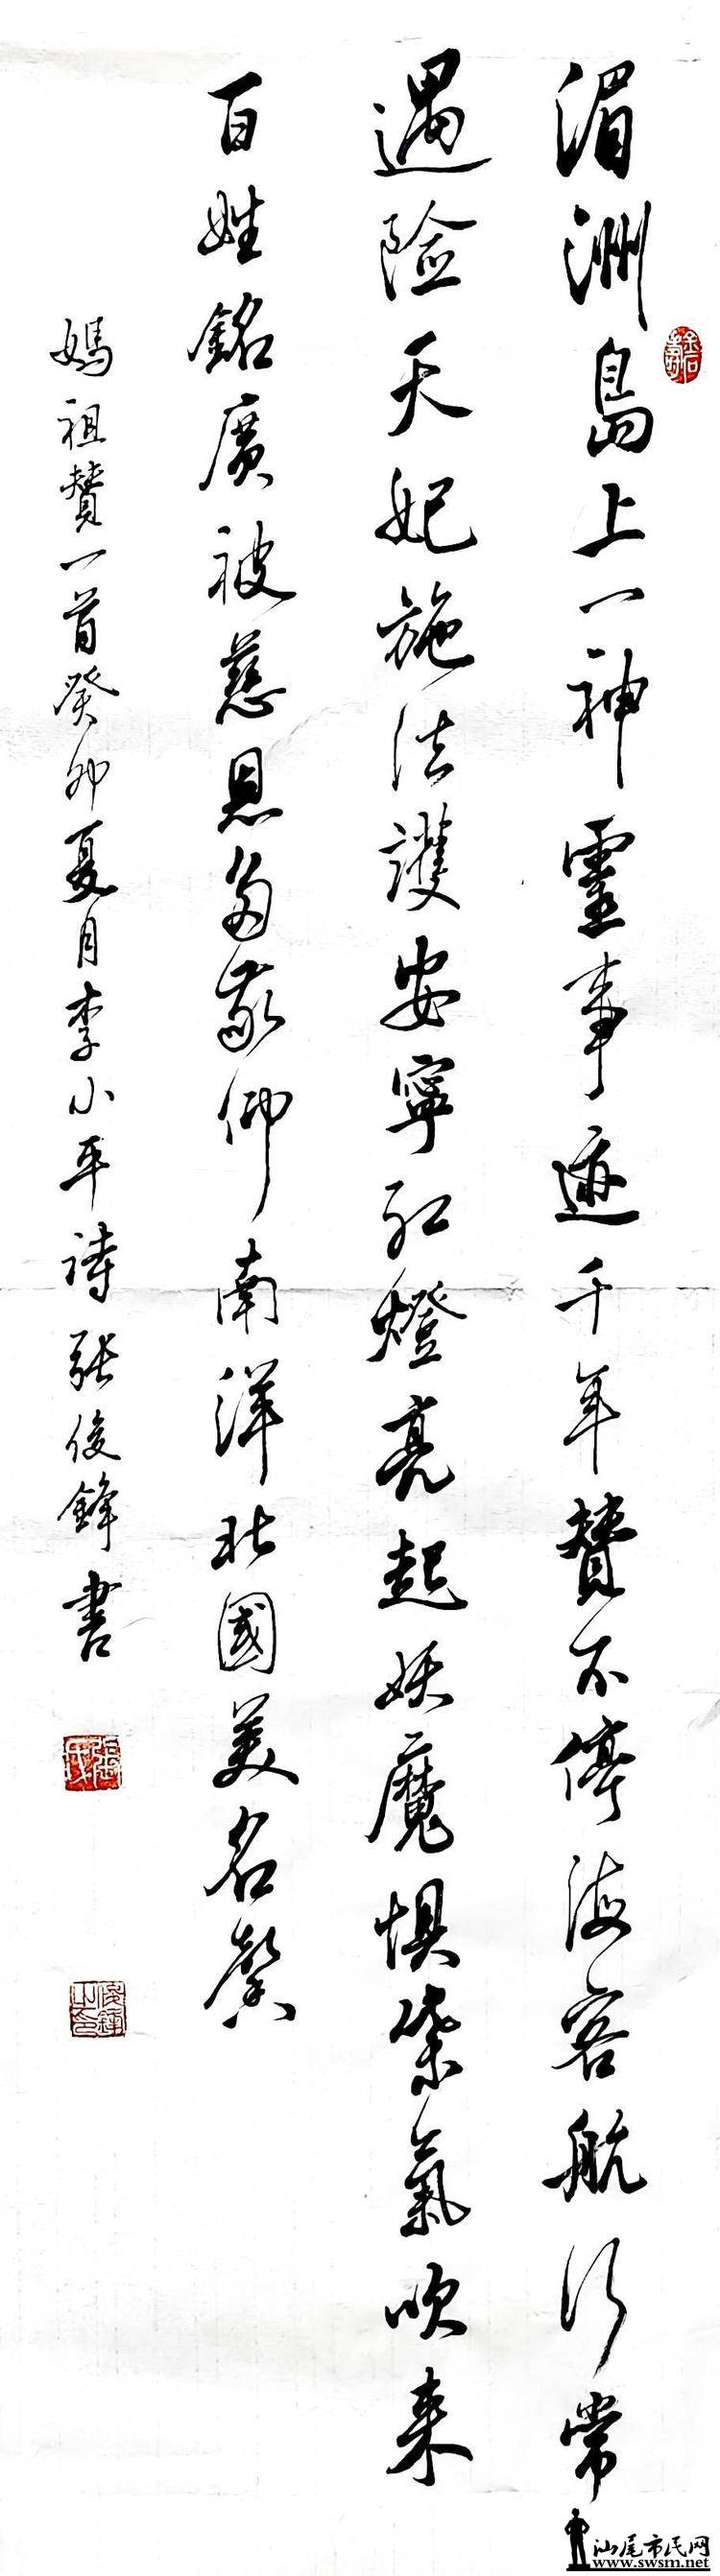 湄洲島上一神靈事迹千年贊不停海客航行常
遇險天妃施法護安寧紅燈亮起妖魔懼紫氣吹来
百姓銘廣被慈恩多敬仰南洋北國美名馨
媽祖贊一首癸卯夏月李小平詩張俊鋒書
汕尾市民网
www.swsm.net